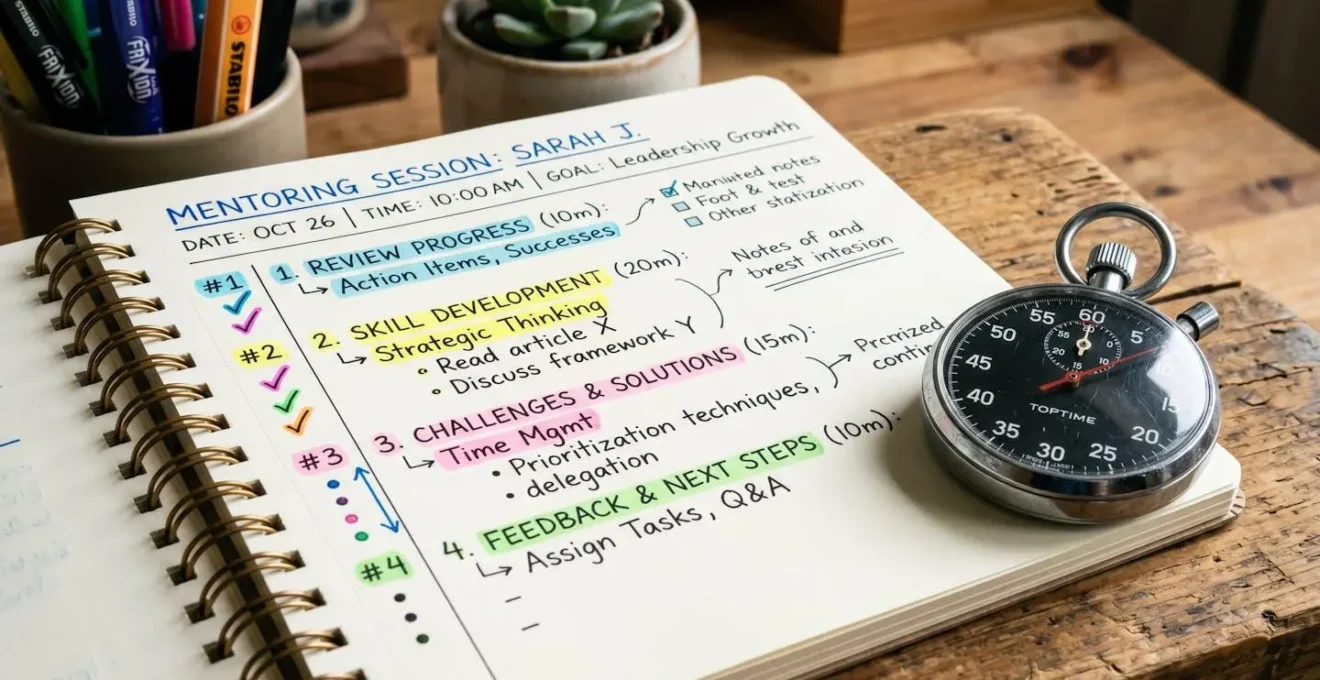 STABILO
FRIXION
FRIXION
STABILO
MENTORING SESSION: SARAH J.
DATE: OCT 26 | TIME: 10:00 AM | GOAL: Leadership Growth
#1
1. REVIEW PROGRESS (10m):
Action Items, Successes
Maniuted notes
Foot & test
Other statization
#2
2. SKILL DEVELOPMENT (20m):
Strategic Thinking
Read article X
Discuss framework Y
Notes of and
brest intasion
#3
3. CHALLENGES & SOLUTIONS (15m):
Time Mgmt
Prioritization techniques,
delegation
Prcrrized
contin
#4
4. FEEDBACK & NEXT STEPS (10m):
Assign Tasks, Q&A
60
5
15
20
25
30
35
40
45
50
55
TOPTIME